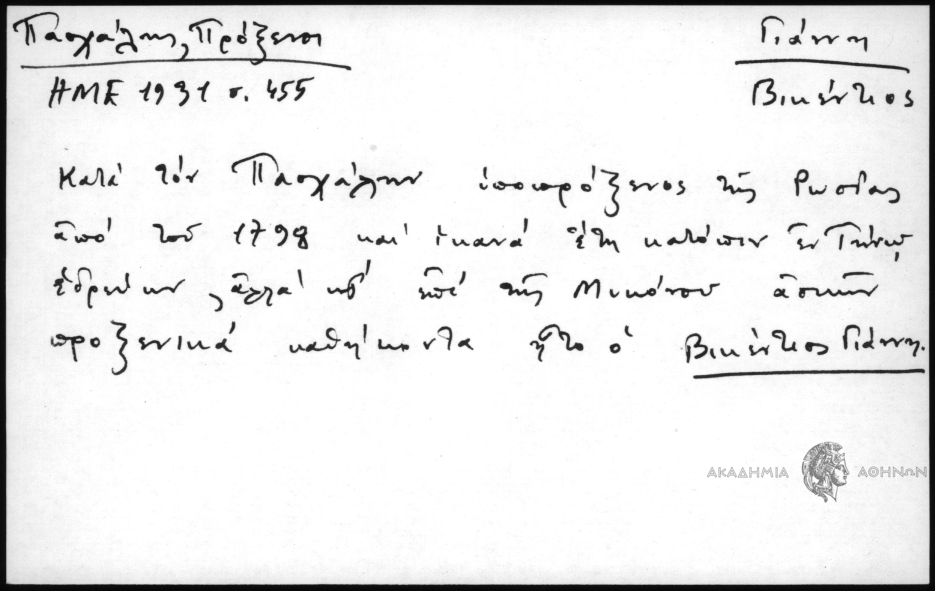 Πασχάλης, Πρόξενοι
Γιάννη
ΗΜΕ 1931 σ. 455
Βικέντιος
Κατά τόν Πασχάλην ὑποπρόξενος τῆς Ρωσίας
ἀπό τοῦ 1798 καί ἱκανά ἔτη κατόπιν ἐν Τήνῳ
ἑδρεύων, ἀλλά καί ἐπί τῆς Μυκόνου ἀσκῶν
προξενικά καθήκοντα ἦτο ὁ Βικέντιος Γιάννη.
ΑΚΑΔΗΜΙΑ ΑΘΗΝΩΝ